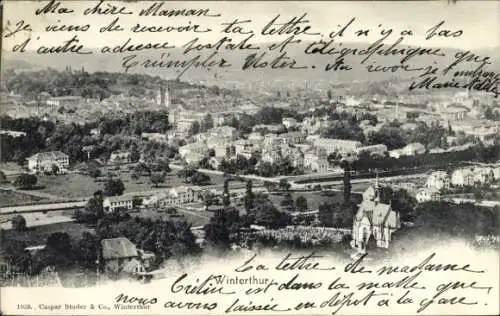 Ma chère Maman
Je viens de recevoir ta lettre, il n'y a pas
d'autre adresse postale & télégraphique que
Trümpler Winterthur. Au revoir je t'embrasse
Marie
Winterthur
La lettre de madame
Crétin est dans la malle que
nous avons laissé en dépot à la gare.
1039. Caspar Studer & Co., Winterthur